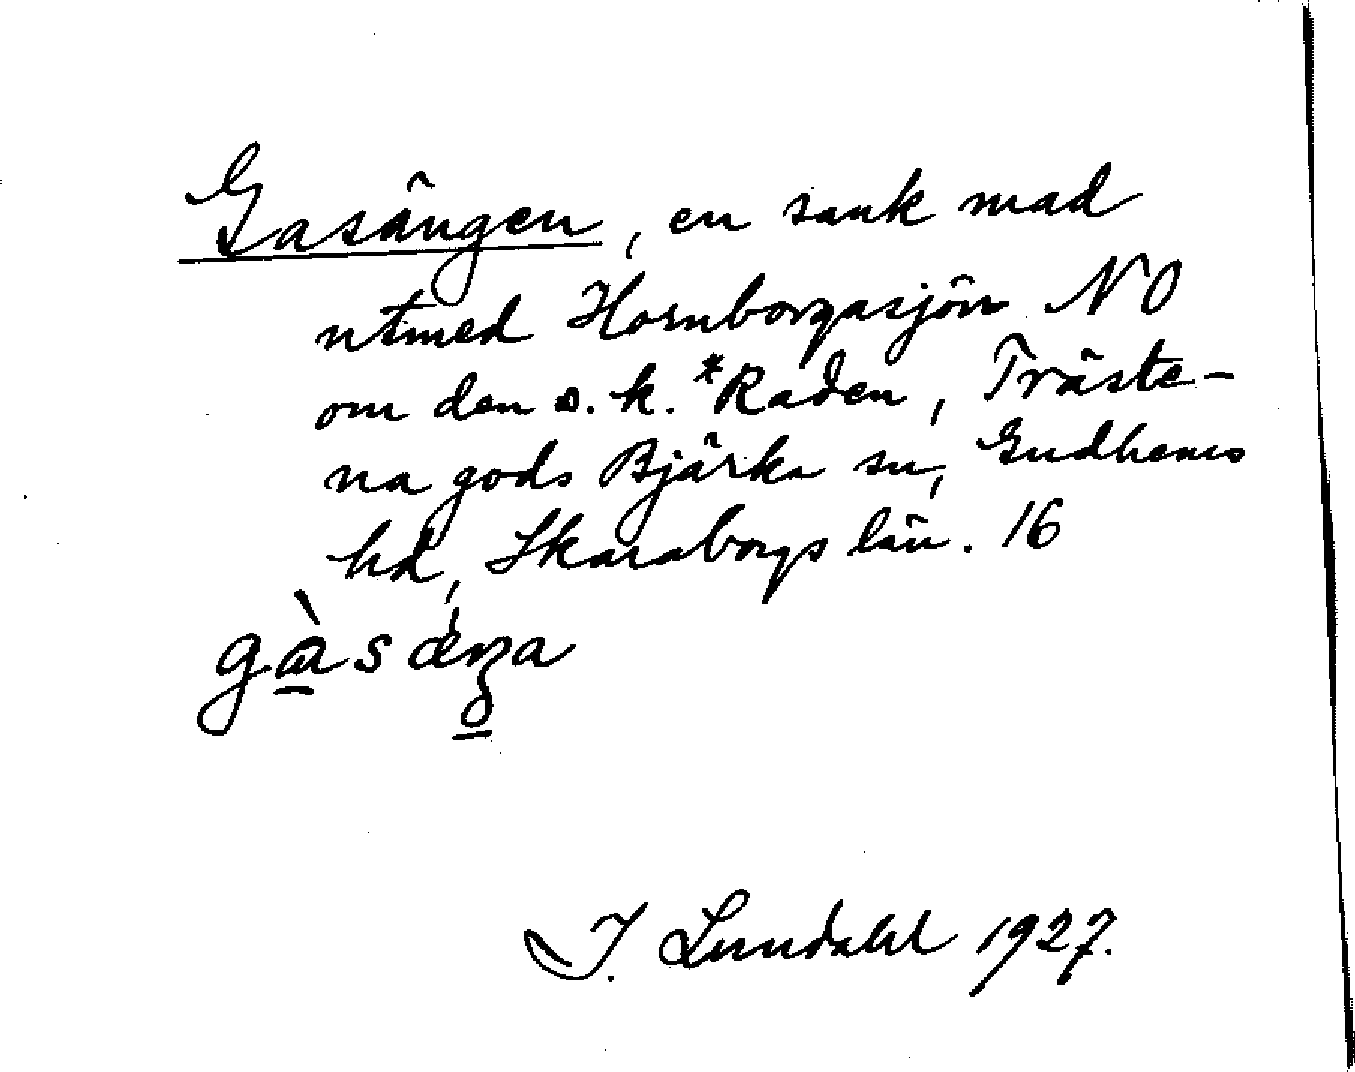 Gasängen, en sank mad
utmed Hornborgasjön NO
om den s.k. *Raden, Träste-
na gods Bjärka sn, Gudhems
hd, Skaraborgs län. 16
I. Lundahl 1927.